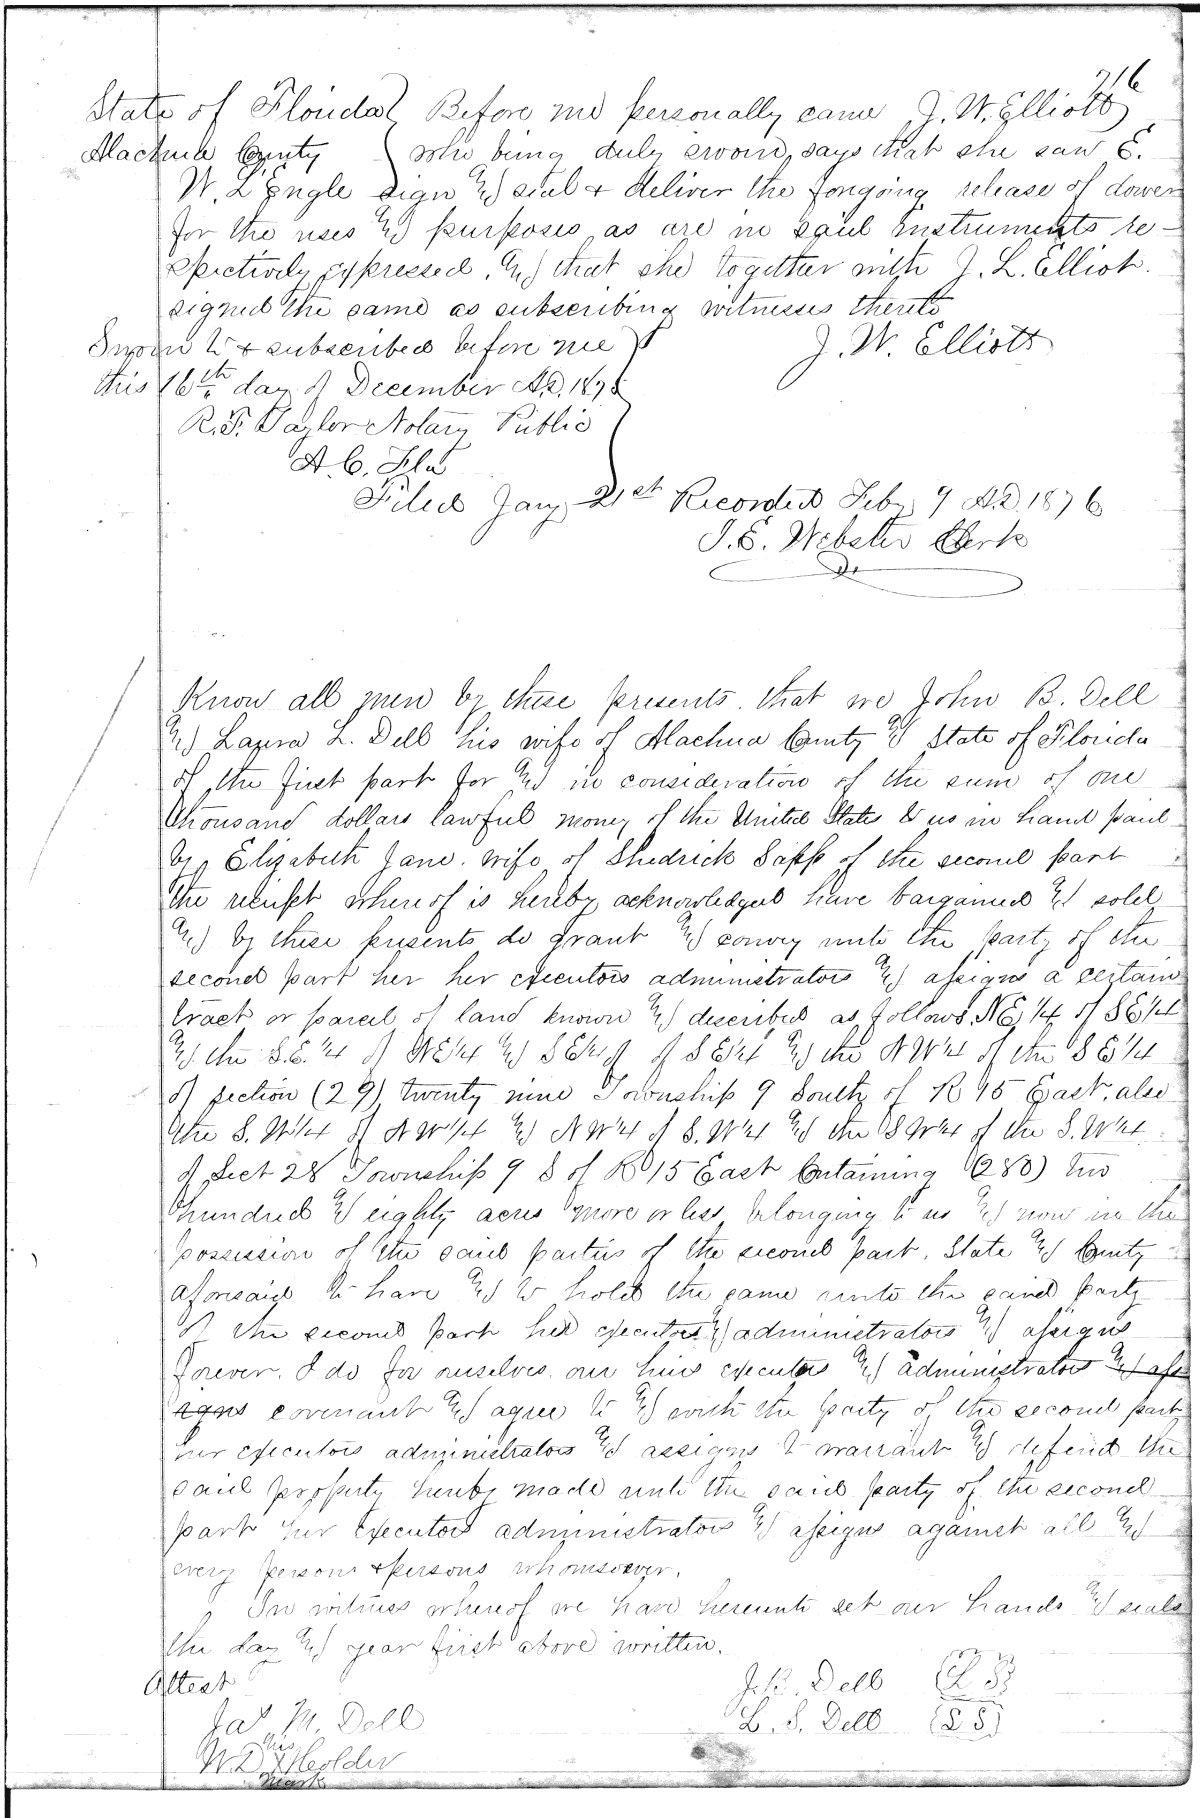 216
State of Florida } Before me personally came J. W. Elliott
Alachua County } who being duly sworn, says that she saw E.
W. L'Engle sign & seal + deliver the forgoing release of dower
for the uses & purposes as are in said instruments re-
spectively expressed, & that she together with J. L. Elliot.
signed the same as subscribing witnesses thereto
Sworn to + subscribed before me } J. W. Elliott
this 16th day of December A.D. 1875
R. F. Taylor Notary Public
A. C. Fla
Filed Jany 21st Recorded Feby 9 A.D. 1876
J. E. Webster Clerk
Know all men by these presents. that we John B. Dell
& Laura L. Dell his wife of Alachua County & State of Florida
of the first part for & in consideration of the sum of one
thousand dollars lawful money of the United States to us in hand paid
by Elizabeth Jane. wife of Shedrick Sapp of the second part
the reciept whereof is hereby acknowledged have bargained & sold
& by these presents do grant & convey unto the party of the
second part her her executors administrators & assigns a certain
tract or parcel of land known & described as follows, NE 1/4 of SE 1/4
& the S.E. 1/4 of NE 1/4 & SE 1/4 of SE 1/4 & the NW 1/4 of the SE 1/4
of section (29) twenty nine Township 9 South of R 15 East. also
the S. W 1/4 of NW 1/4 & NW 1/4 of S. W 1/4 & the SW 1/4 of the S. W 1/4
of Sect 28 Township 9 S of R 15 East Containing (280) two
hundred & eighty acres more or less, belonging to us & now in the
possession of the said parties of the second part. State & County
aforesaid to have & to hold the same unto the said party
of the second part her executors & administrators & assigns
forever. I do for ourselves. our heirs executors & administrators & ass
igns covenant & agree to & with the party of the second part
her executors administrators & assigns to warrant & defend the
said property hereby made unto the said party of the second
part her executors administrators & assigns against all &
every person + persons whomsoever.
In witness whereof we have hereunto set our hands & seals
the day & year first above written.
Attest J. B. Dell (L S)
Jas M. Dell L. S. Dell (L S)
his
W. D. X Holder
mark